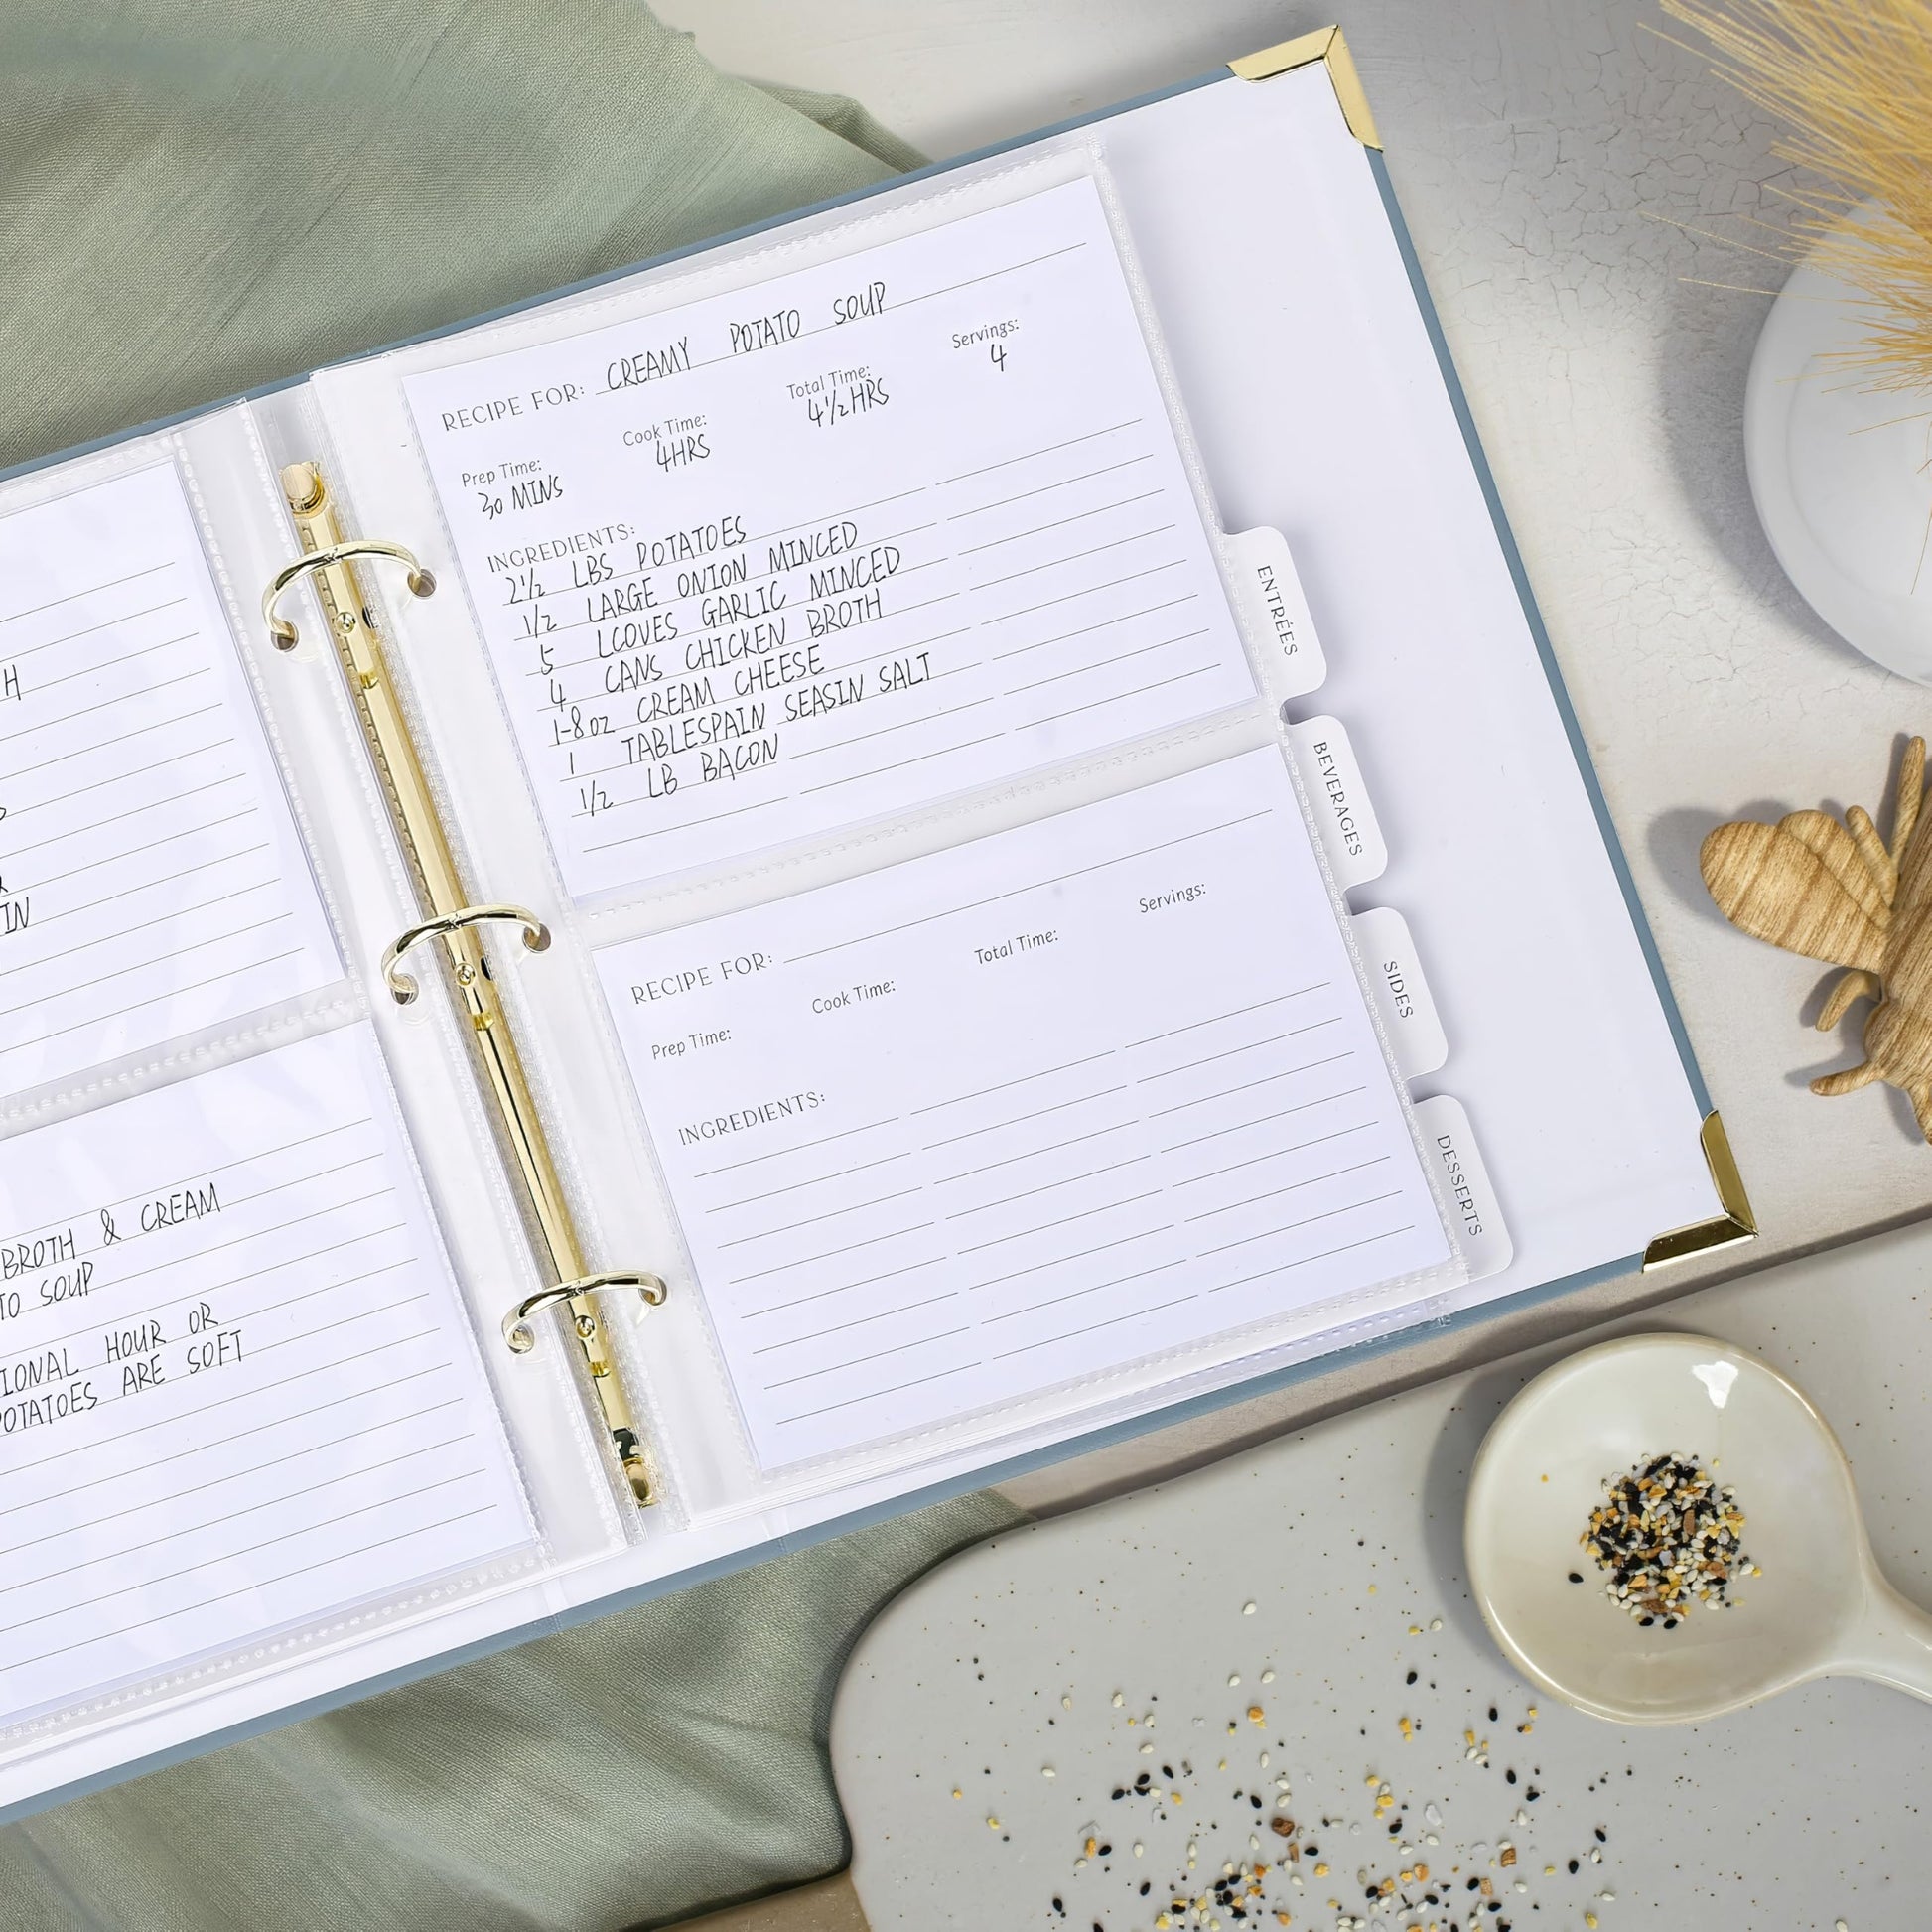 H
IN
BROTH & CREAM
TO SOUP
IONAL HOUR OR
POTATOES ARE SOFT
RECIPE FOR: CREAMY POTATO SOUP
Prep Time: Cook Time: Total Time: Servings:
30 MINS 4HRS 4½HRS 4
INGREDIENTS:
2½ LBS POTATOES
1/2 LARGE ONION MINCED
5 LCOVES GARLIC MINCED
4 CANS CHICKEN BROTH
1-8 oz CREAM CHEESE
1 TABLESPAIN SEASIN SALT
1/2 LB BACON
RECIPE FOR:
Prep Time: Cook Time: Total Time: Servings:
INGREDIENTS:
ENTRÉES
BEVERAGES
SIDES
DESSERTS